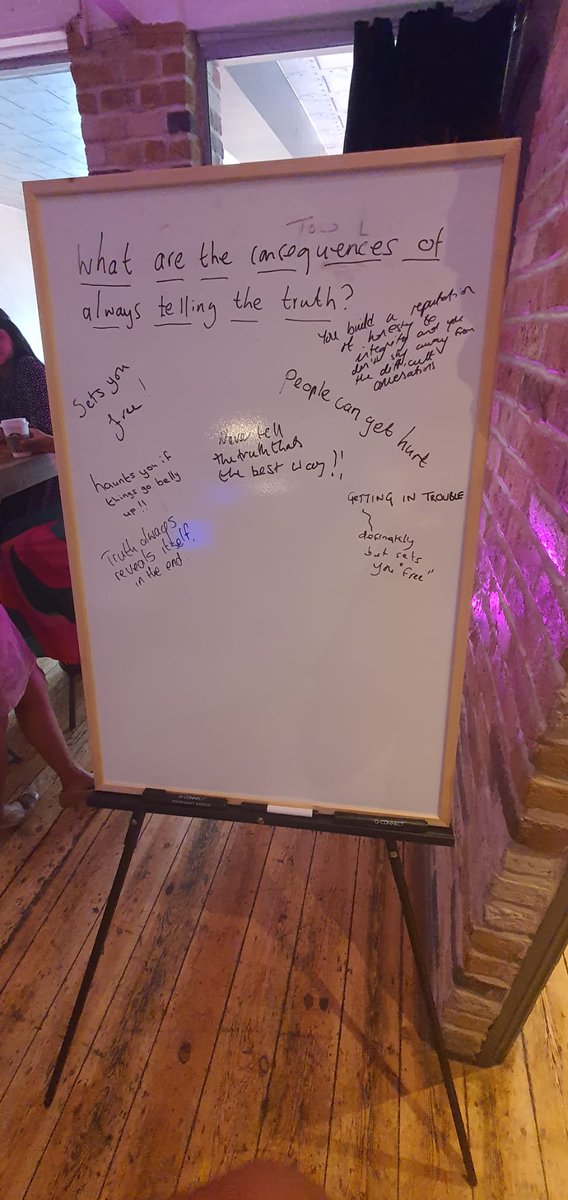 What are the consequences of
always telling the truth?
You build a reputation
of honesty &
integrity and you
don't shy away from
the difficult
conversations
Sets you
free!
People can get hurt
Never tell
the truth thats
the best way!!
haunts you if
things go belly
up!!
GETTING IN TROUBLE
but sets
you "free"
Truth always
reveals itself.
in the end.
Q-CONNECT
Q-CONNECT